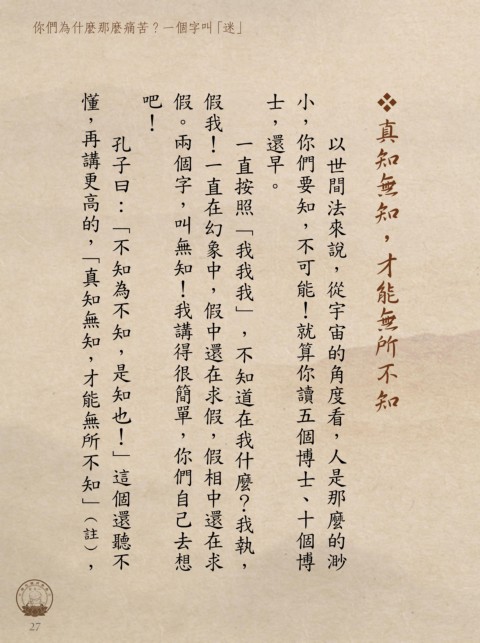 你們為什麼那麼痛苦？一個字叫「迷」
❖真知無知，才能無所不知
以世間法來說，從宇宙的角度看，人是那麼的渺
小，你們要知，不可能！就算你讀五個博士、十個博
士，還早。
一直按照「我我我」，不知道在我什麼？我執，
假我！一直在幻象中，假中還在求假，假相中還在求
假。兩個字，叫無知！我講得很簡單，你們自己去想
吧！
孔子曰：「不知為不知，是知也！」這個還聽不
懂，再講更高的，「真知無知，才能無所不知」（註），
27